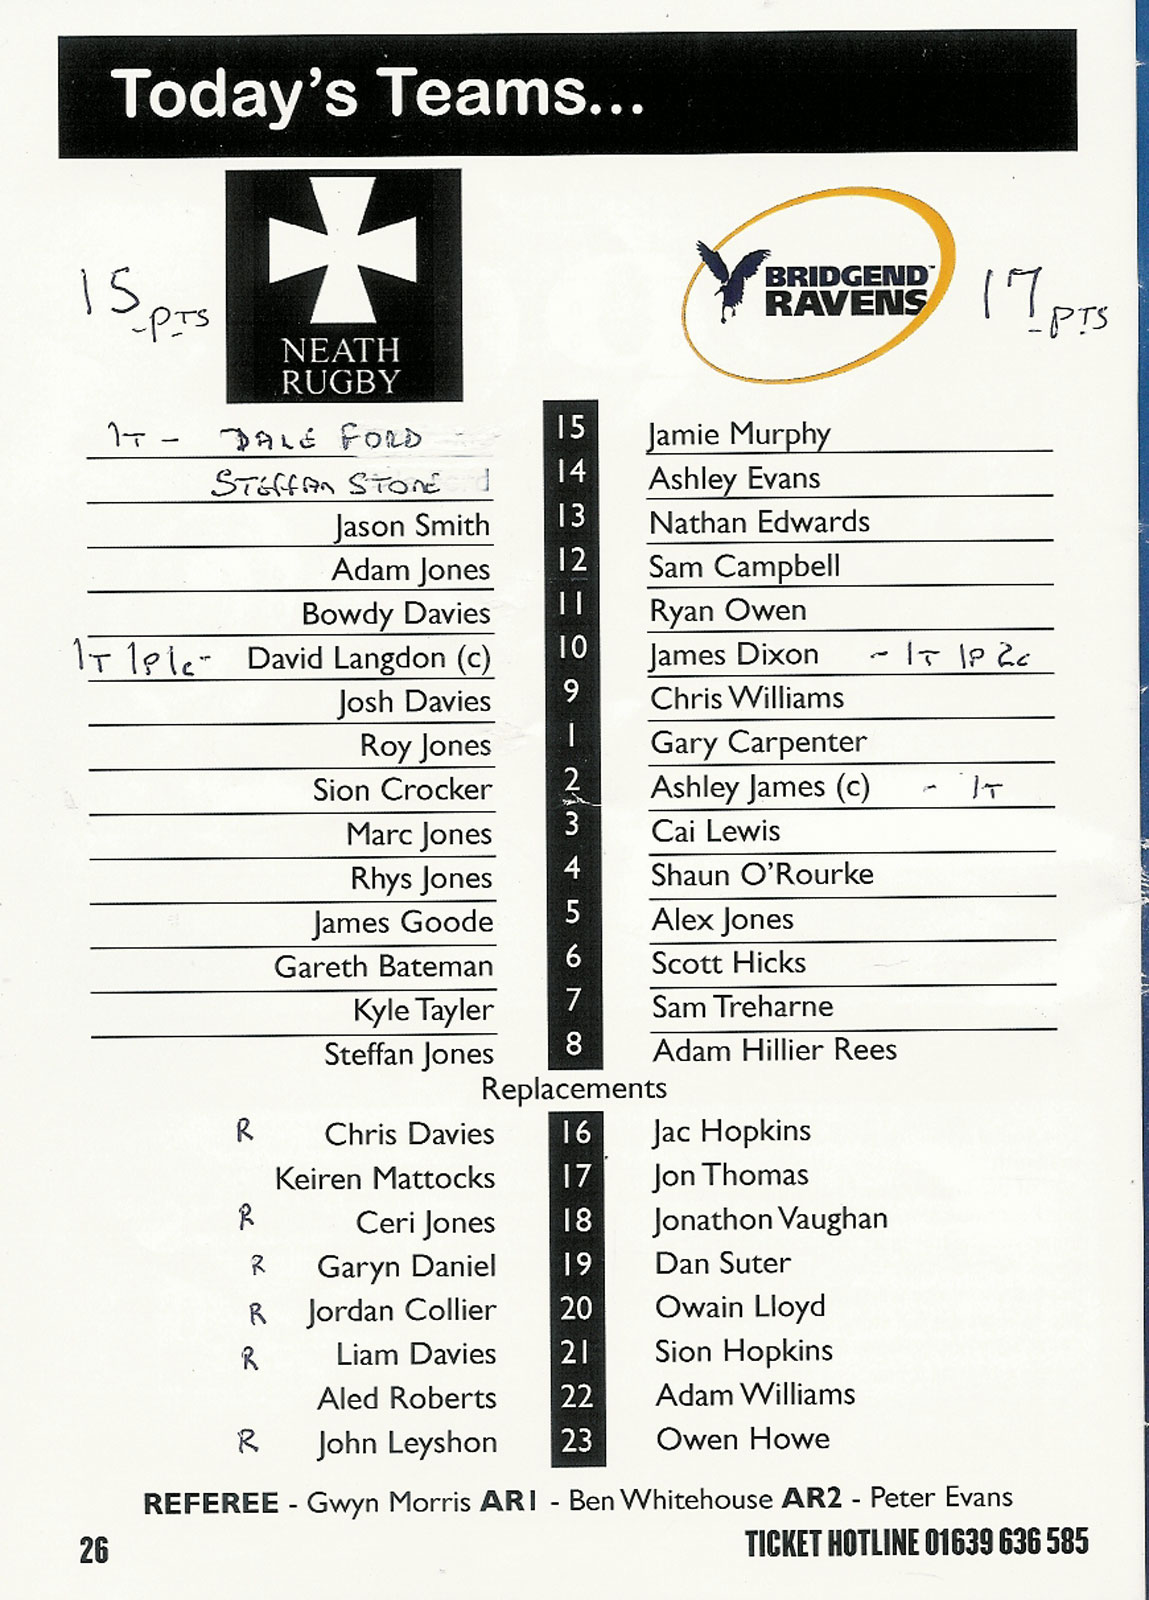 Today's Teams...
15 -PTS
NEATH
RUGBY
BRIDGEND™
RAVENS
17 -PTS
1T - DALE FORD 15 Jamie Murphy
STEFFAN STONE 14 Ashley Evans
Jason Smith 13 Nathan Edwards
Adam Jones 12 Sam Campbell
Bowdy Davies 11 Ryan Owen
1T 1P 1c - David Langdon (c) 10 James Dixon - 1T 1P 2c
Josh Davies 9 Chris Williams
Roy Jones 1 Gary Carpenter
Sion Crocker 2 Ashley James (c) - 1T
Marc Jones 3 Cai Lewis
Rhys Jones 4 Shaun O'Rourke
James Goode 5 Alex Jones
Gareth Bateman 6 Scott Hicks
Kyle Tayler 7 Sam Treharne
Steffan Jones 8 Adam Hillier Rees
Replacements
R Chris Davies 16 Jac Hopkins
Keiren Mattocks 17 Jon Thomas
R Ceri Jones 18 Jonathon Vaughan
R Garyn Daniel 19 Dan Suter
R Jordan Collier 20 Owain Lloyd
R Liam Davies 21 Sion Hopkins
Aled Roberts 22 Adam Williams
R John Leyshon 23 Owen Howe
REFEREE - Gwyn Morris AR1 - Ben Whitehouse AR2 - Peter Evans
26 TICKET HOTLINE 01639 636 585